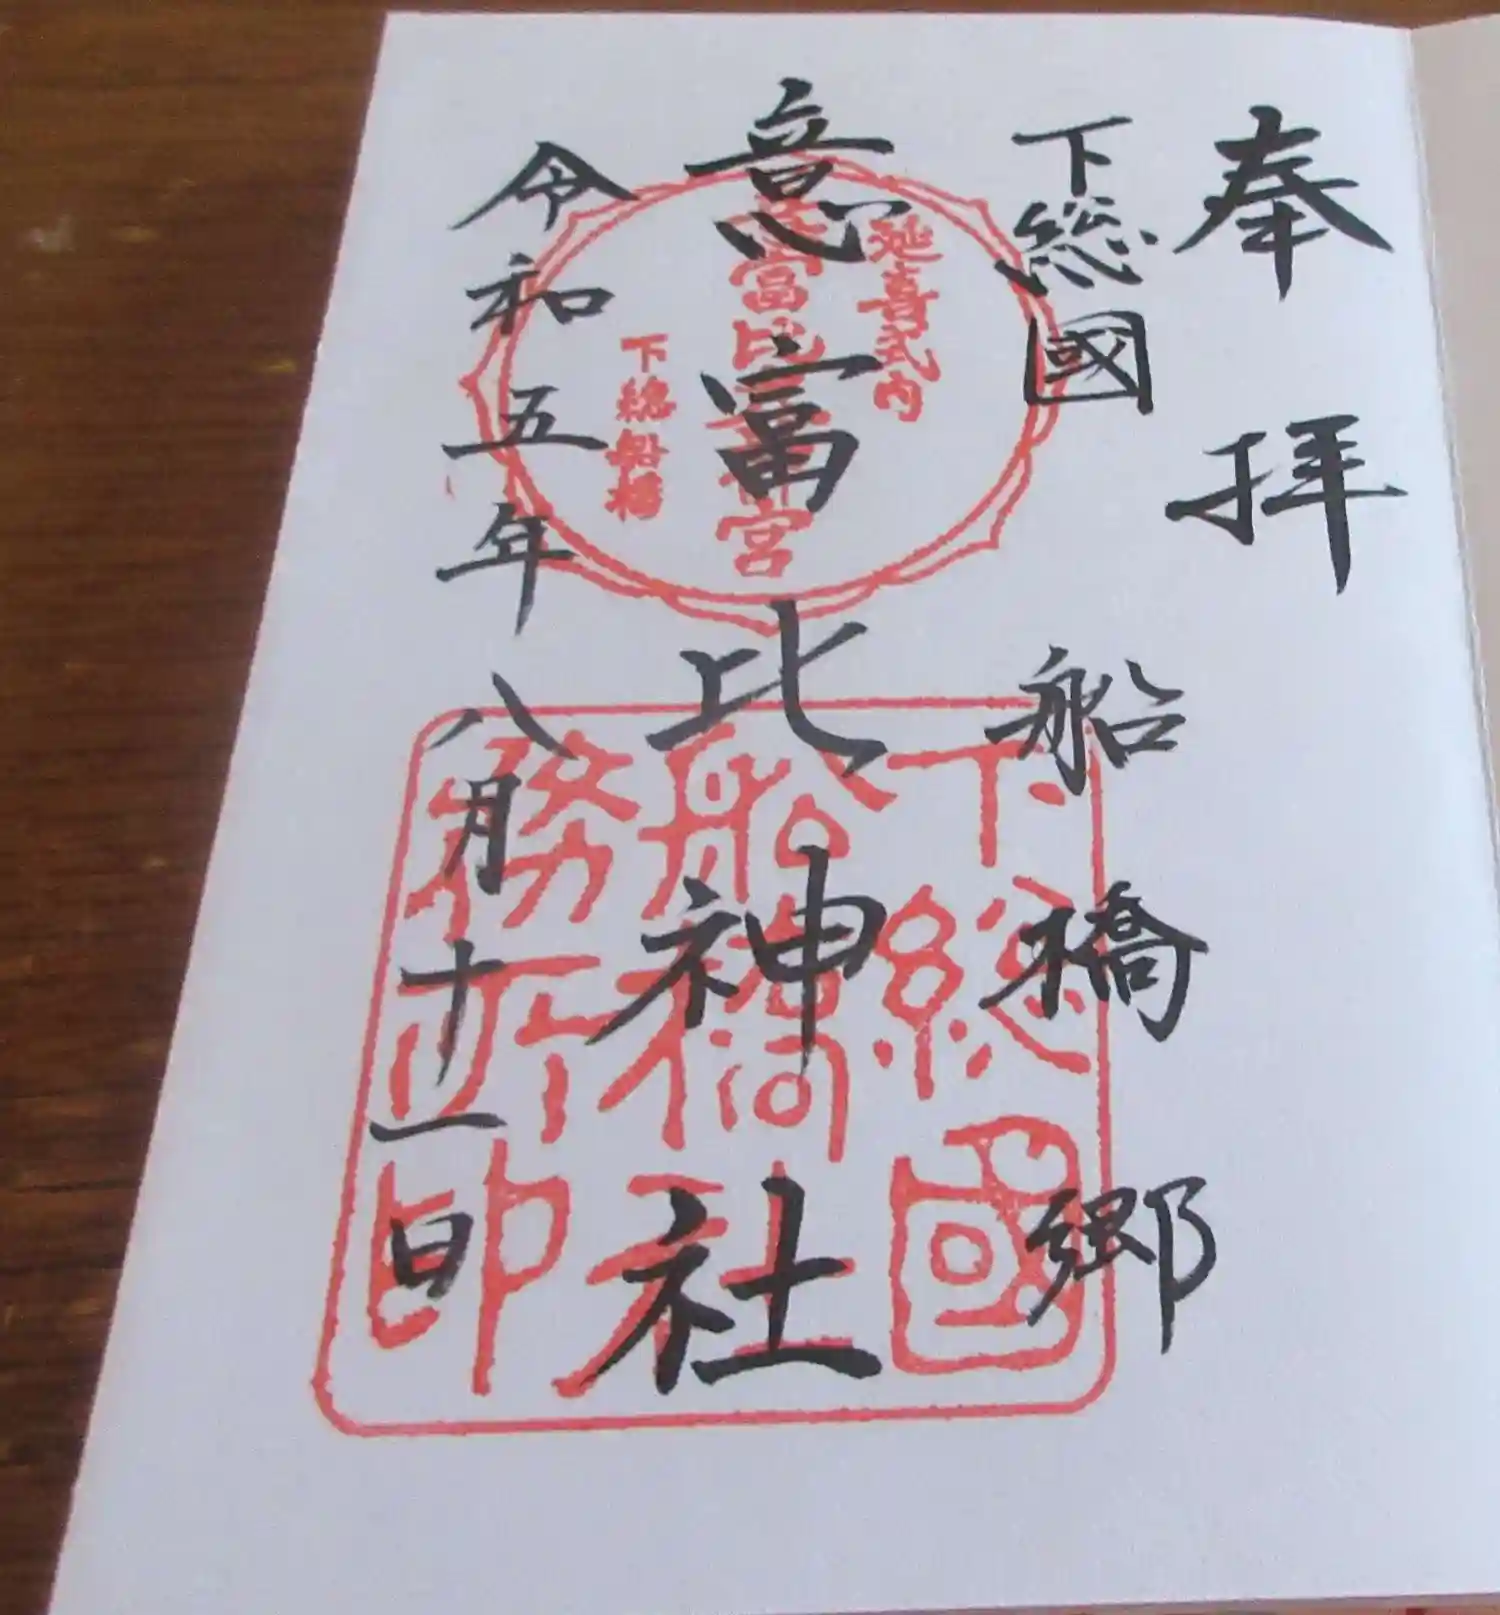 奉拝
下總國
船橋郷
意富比神社
令和五年
八月十一日
延喜式内
意富比
神宮
下総船橋
下総國
船橋
務所印